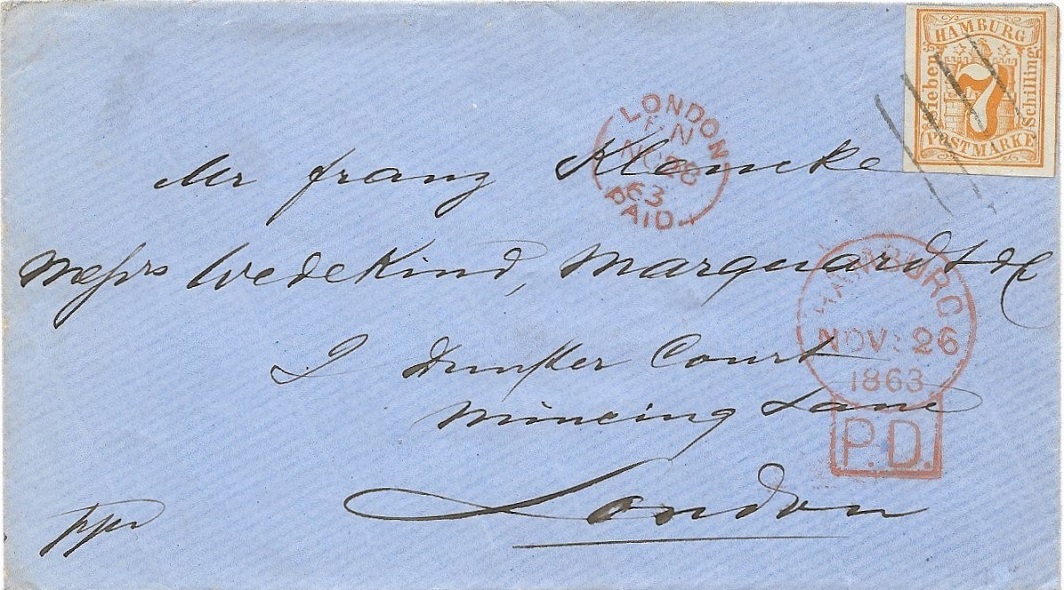 HAMBURG
Sieben
7
Schilling
POSTMARKE
LONDON
NO 28
63
PAID
Mr Franz Klemcke
Messrs Wedekind, Marquardt & C
HAMBURG
NOV: 26
1863
Court
Mincing Lane
P.D.
London